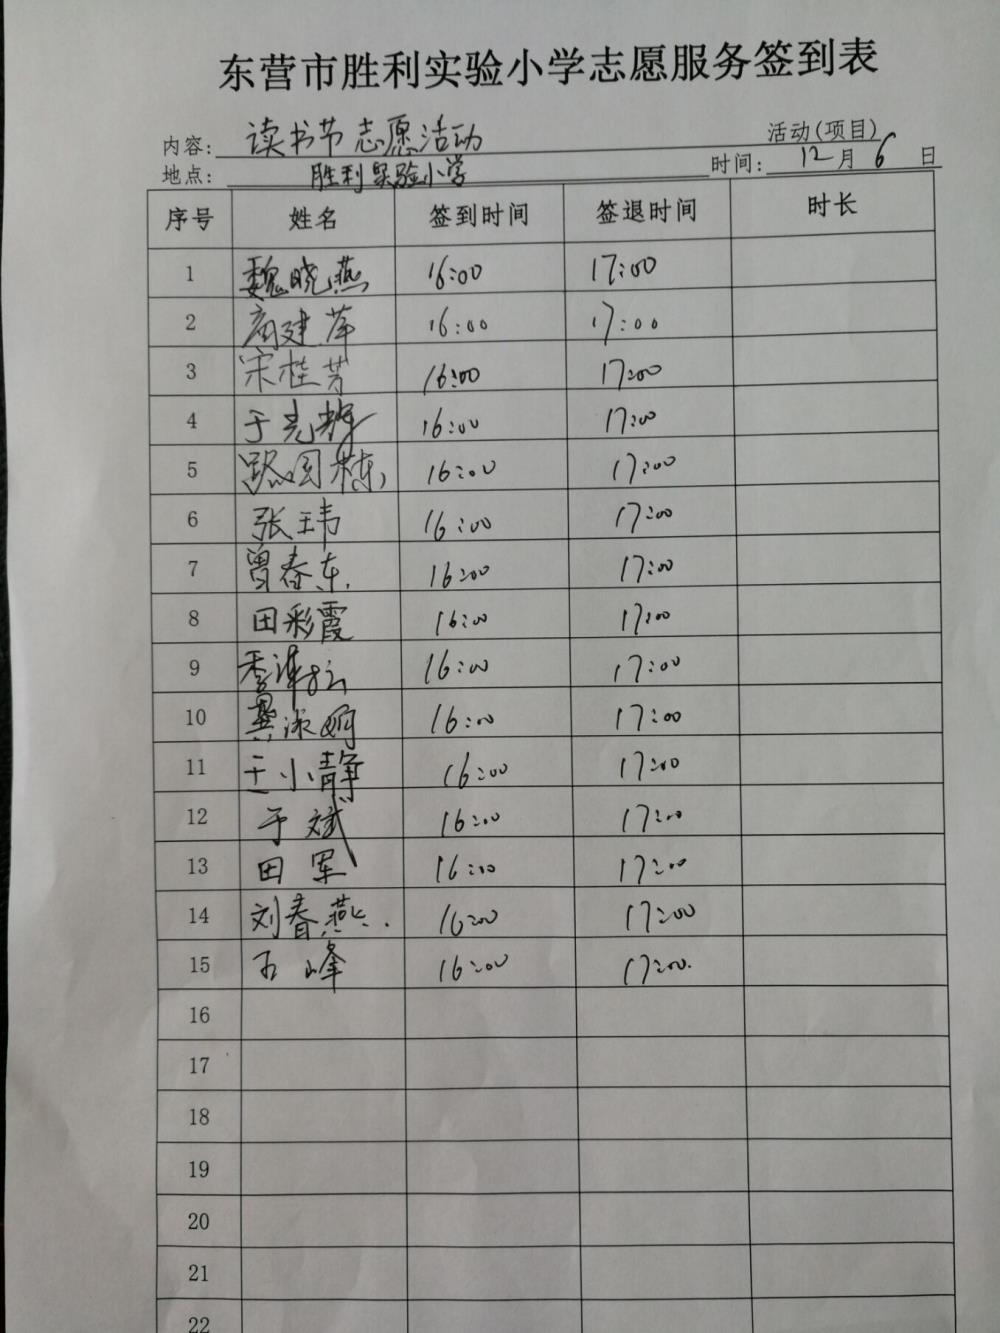 东营市胜利实验小学志愿服务签到表
内容: 读书节志愿活动 活动(项目)
地点: 胜利实验小学 时间: 12月6日
序号 姓名 签到时间 签退时间 时长
1 魏晓燕 16:00 17:00
2 建萍 16:00 17:00
3 宋桂芳 16:00 17:00
4 于光辉 16:00 17:00
5 路国栋 16:00 17:00
6 张玮 16:00 17:00
7 曾春东 16:00 17:00
8 田彩霞 16:00 17:00
9 16:00 17:00
10 16:00 17:00
11 王小静 16:00 17:00
12 于斌 16:00 17:00
13 田军 16:00 17:00
14 刘春燕 16:00 17:00
15 峰 16:00 17:00
16
17
18
19
20
21
22